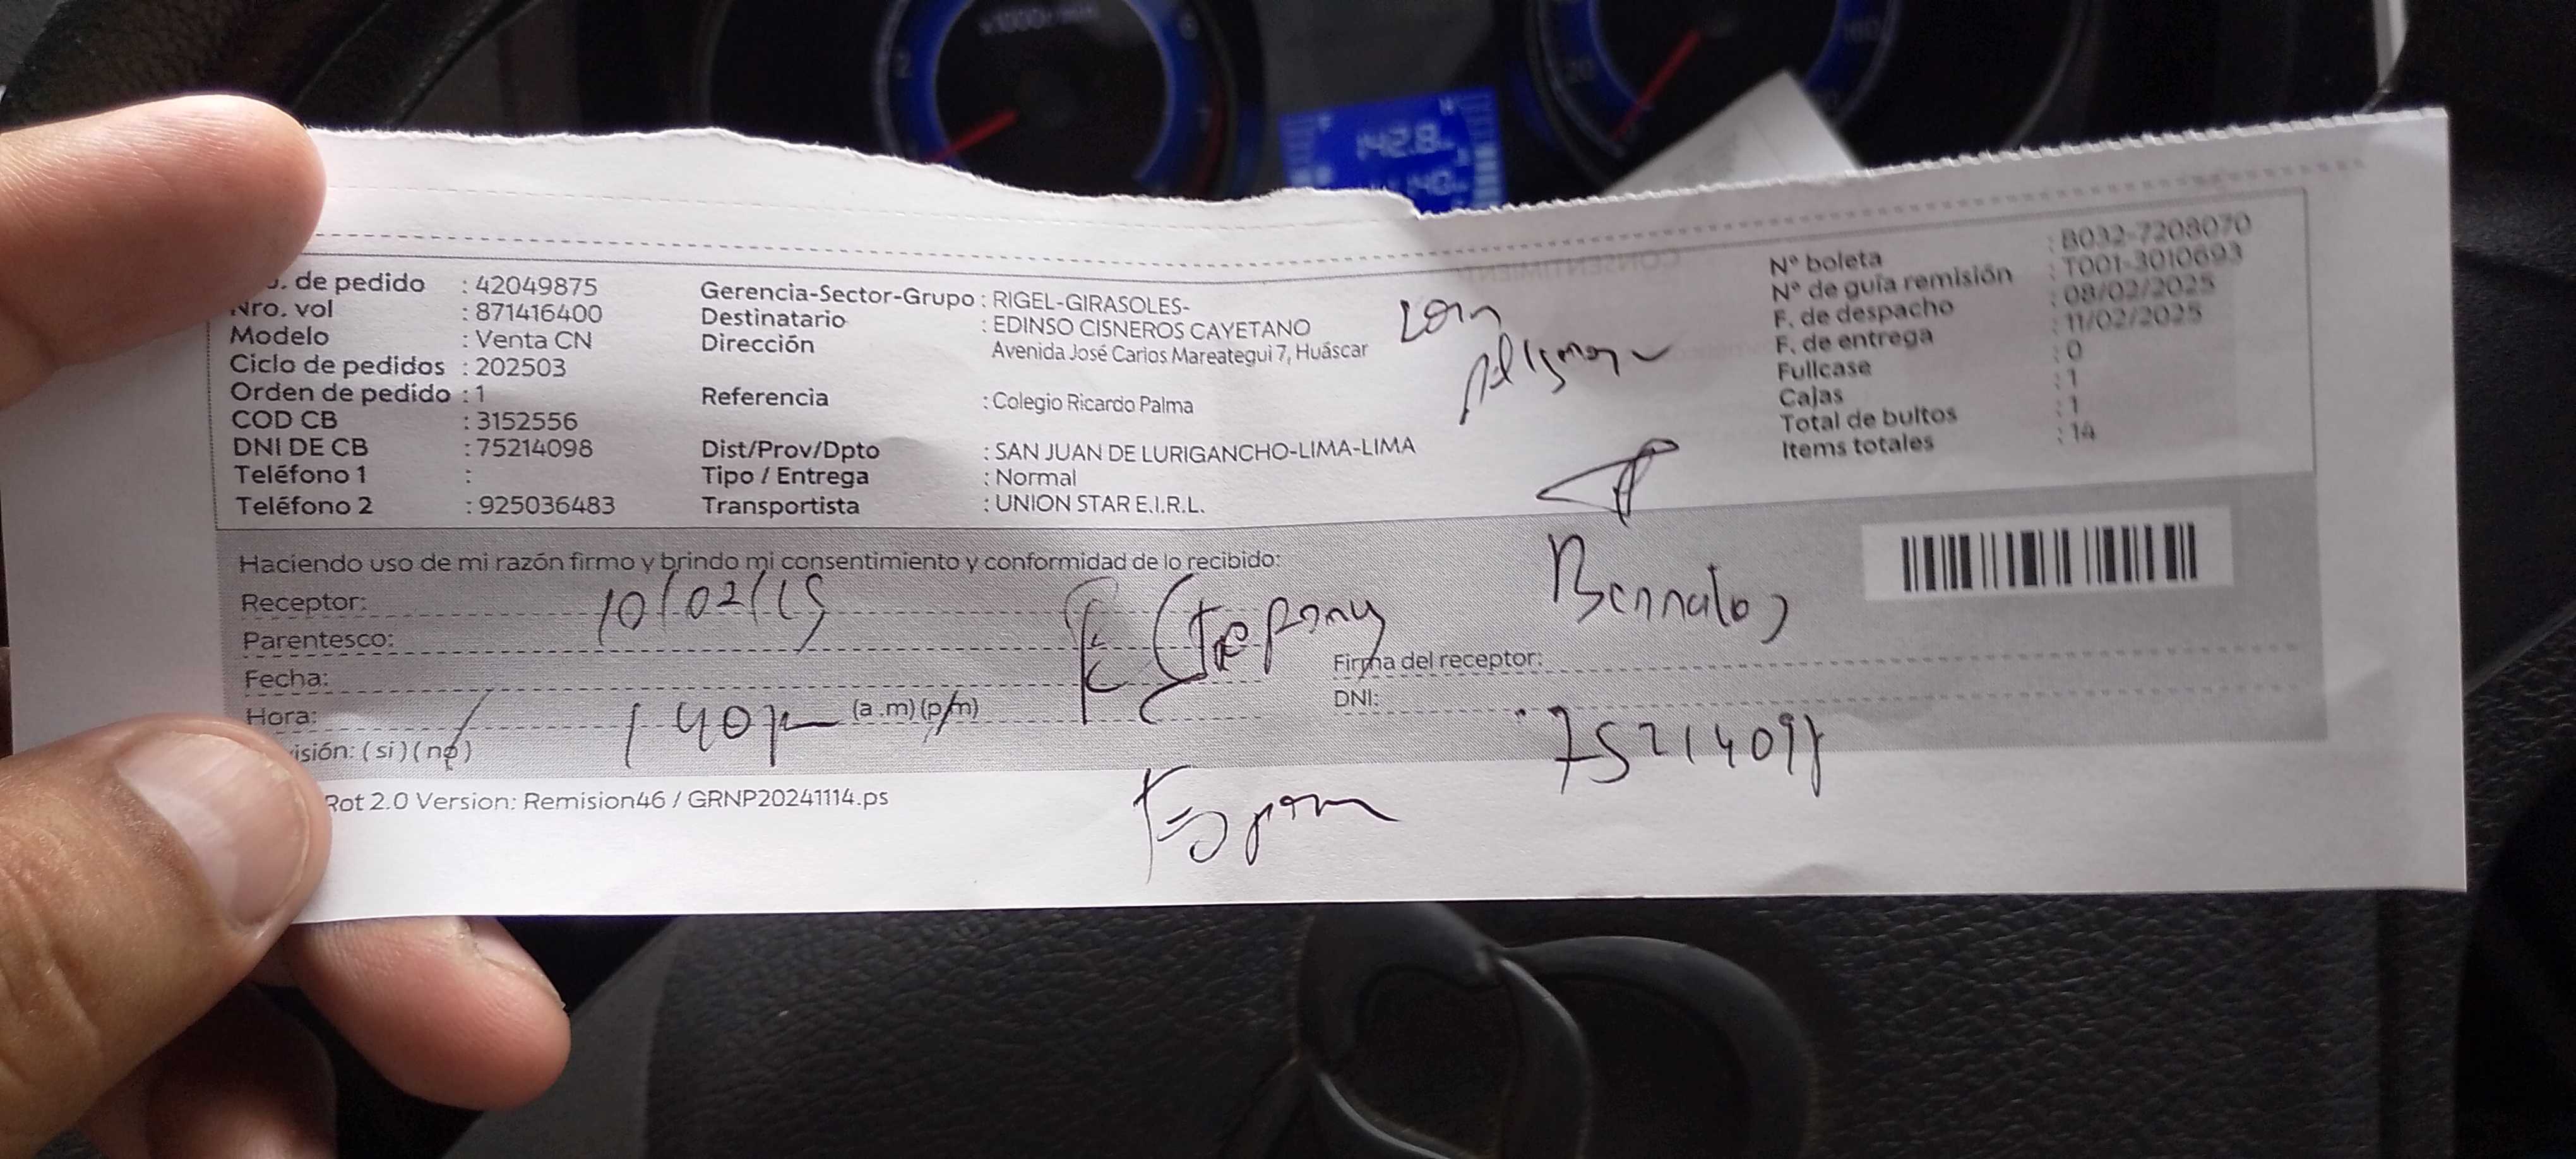 de pedido : 42049875
Nro. vol : 871416400
Modelo : Venta CN
Ciclo de pedidos : 202503
Orden de pedido : 1
COD CB : 3152556
DNI DE CB : 75214098
Teléfono 1 :
Teléfono 2 : 925036483
Gerencia-Sector-Grupo : RIGEL-GIRASOLES-
Destinatario : EDINSO CISNEROS CAYETANO
Dirección Avenida José Carlos Mareategui 7, Huáscar
Referencia : Colegio Ricardo Palma
Dist/Prov/Dpto : SAN JUAN DE LURIGANCHO-LIMA-LIMA
Tipo / Entrega : Normal
Transportista : UNION STAR E.I.R.L.
N° boleta : B032-7208070
N° de guía remisión : T001-3010693
F. de despacho : 08/02/2025
F. de entrega : 11/02/2025
Fullcase : 0
Cajas : 1
Total de bultos : 1
Items totales : 14
Haciendo uso de mi razón firmo y brindo mi consentimiento y conformidad de lo recibido:
Receptor:
Parentesco:
Fecha:
Hora: 1 40 (a .m) (p/m)
(si) (no)
Firma del receptor:
DNI: 75214098
Rot 2.0 Version: Remision46 / GRNP20241114.ps
142.8